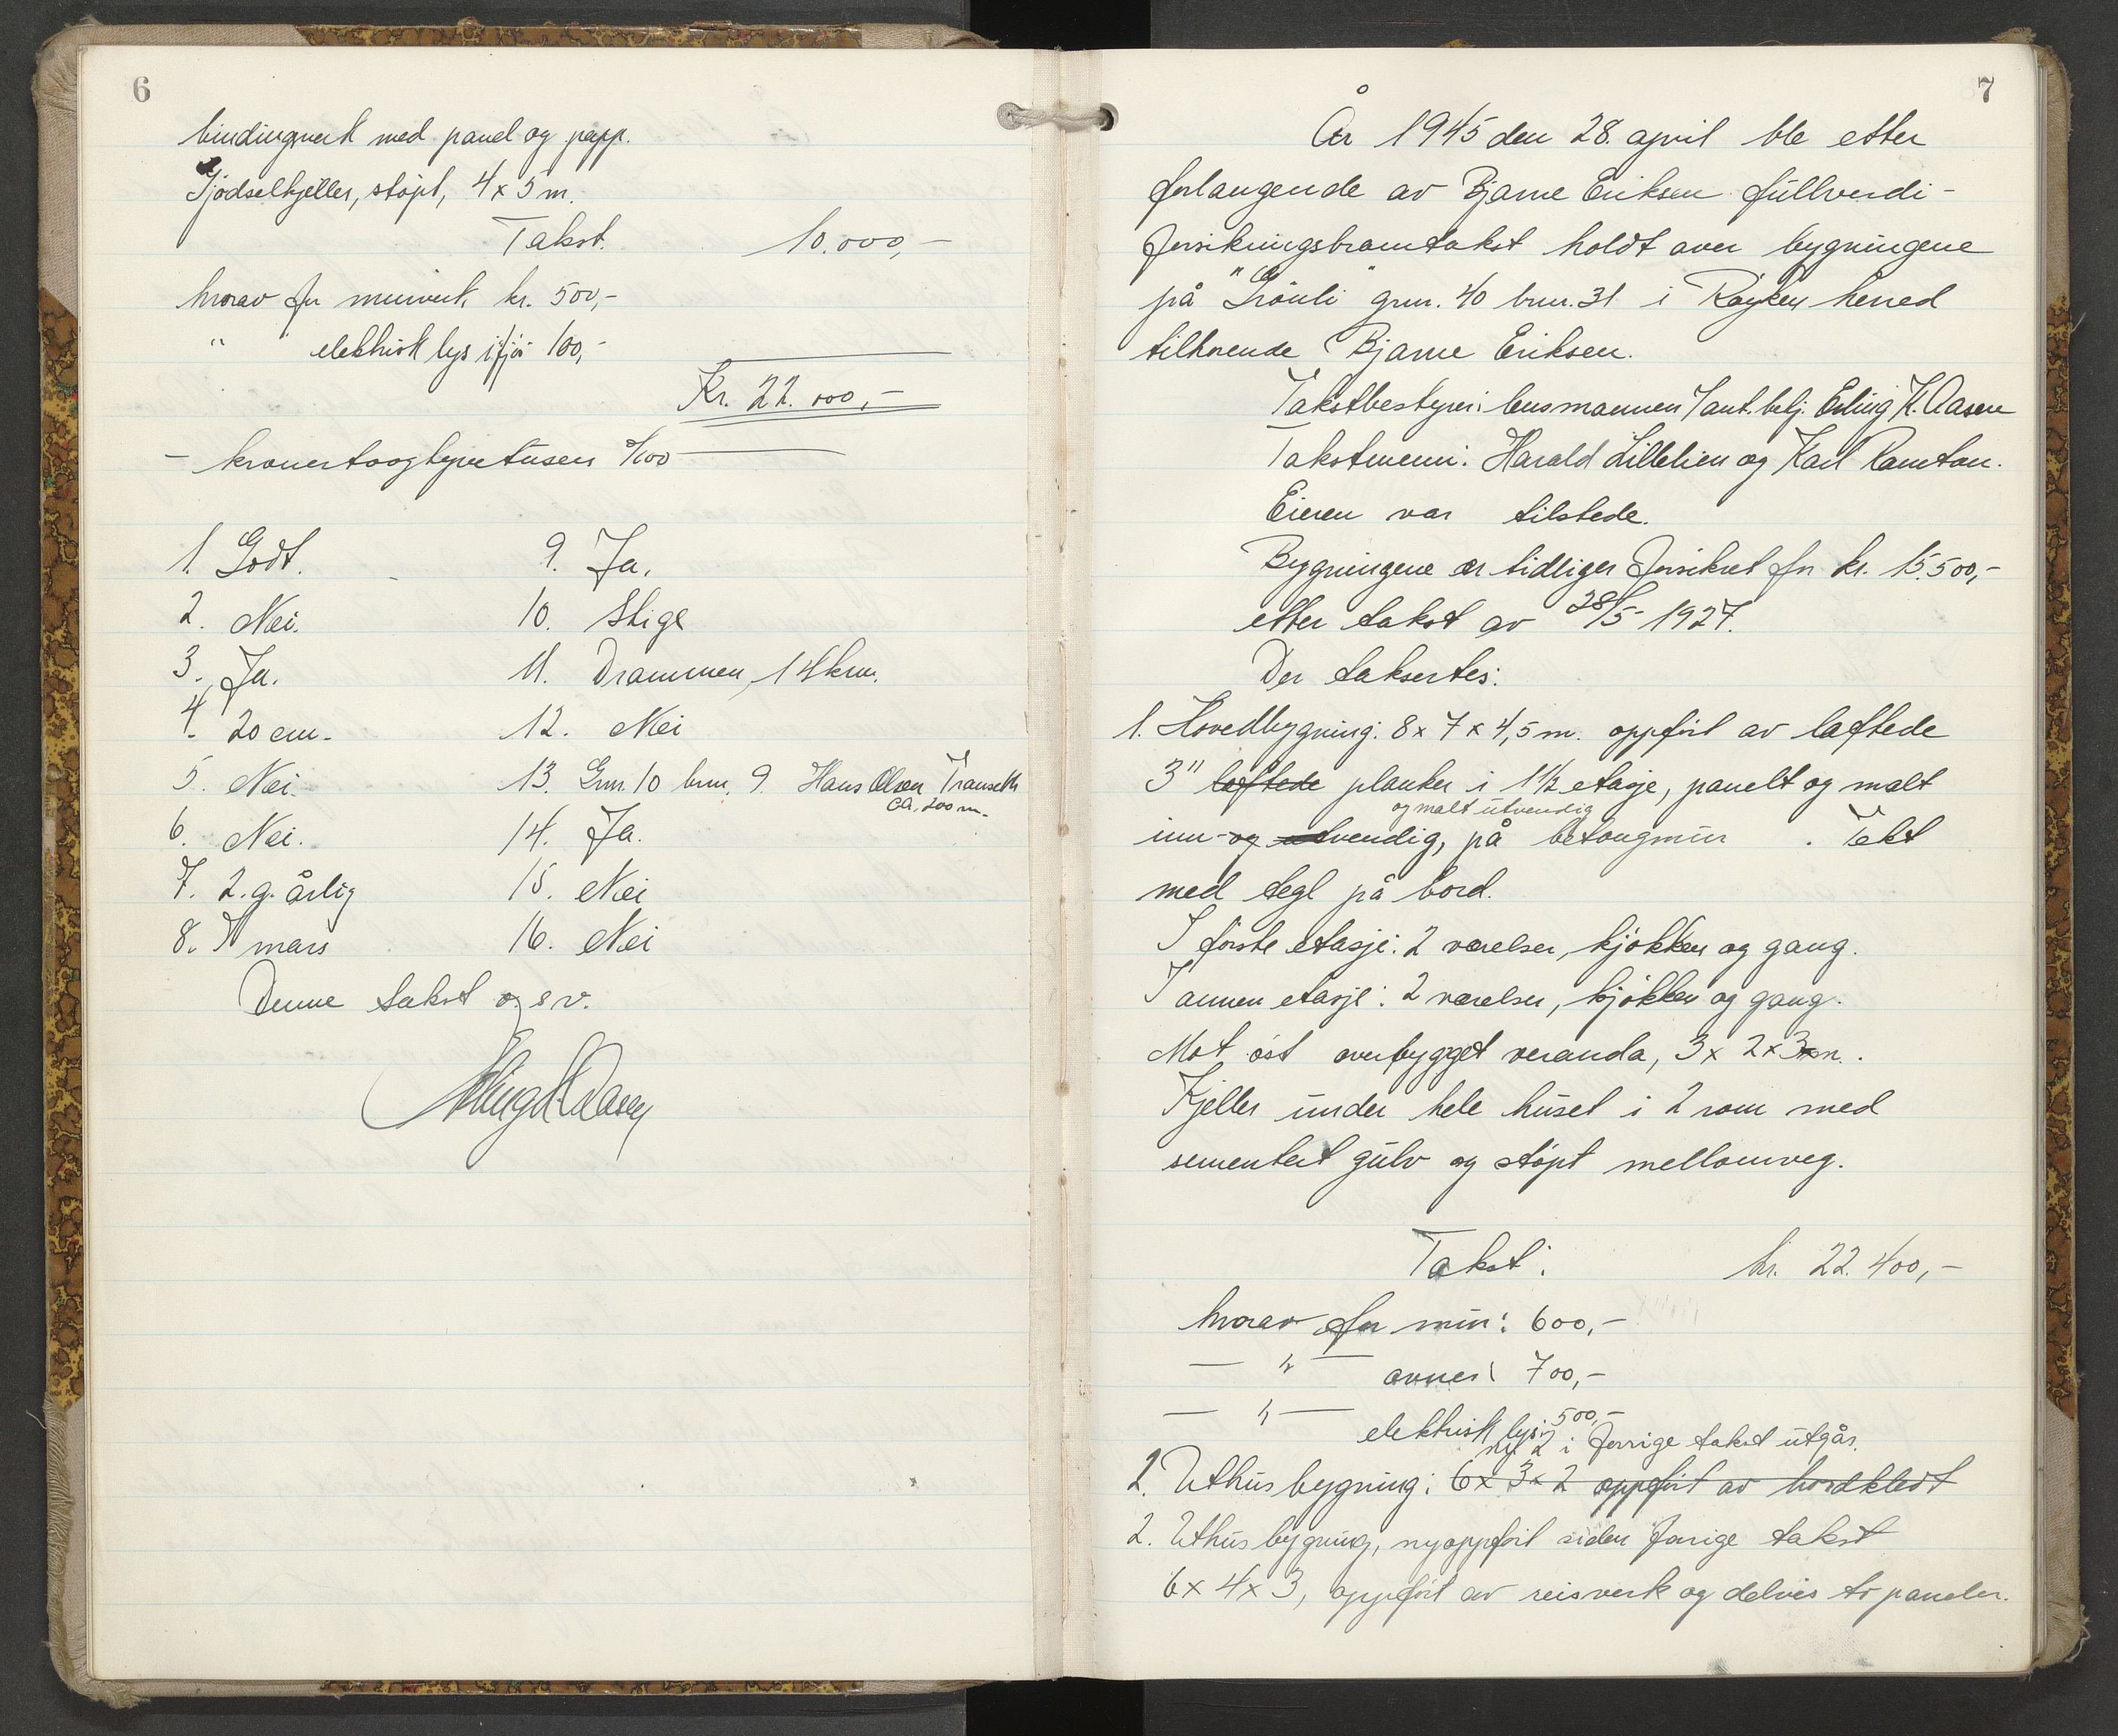 6
bindingsverk med panel og papp.
Gjödselkjeller, støpt, 4 x 5 m.
Takst. 10.000,-
hvorav for murverk kr. 500,-
" elektrisk lys i fjös 100,-
Kr. 22.000,-
- kronertoogtyvetusen 0/100
1. Godt. 9. Ja.
2. Nei. 10. Stige
3. Ja. 11. Drammen, 14 km.
4. 20 cm. 12. Nei
5. Nei. 13. Gnr. 10 bnr. 9. Hans Olsen Transeth
ca. 200 m.
6. Nei. 14. Ja.
7. 2. g. årlig 15. Nei
8. I mars 16. Nei
Denne takst o. s. v.
Erling K. Aasen
7
År 1945 den 28. april ble etter
forlangende av Bjarne Eriksen fullverdi-
forsikringsbranntakst holdt over bygningene
på "Grönli" gnr. 40 bnr. 31 i Röyken herred
tilhørende Bjarne Eriksen.
Takstbestyrer: lensmannen / aut. betj. Erling K. Aasen
Takstmenn: Harald Lillelien og Karl Ramton.
Eieren var tilstede.
Bygningene er tidliger forsikret for kr. 15.500,-
etter takst av 28/5-1927.
Der taksertes:
1. Hovedbygning: 8 x 7 x 4,5 m. oppfört av laftede
3" laftede planker i 1 1/2 etasje, panelt og malt
og malt utvendig
inn- og utvendig, på betongmur . Tekt
med tegl på bord.
I første etasje: 2 værelser, kjøkken og gang.
I annen etasje: 2 værelser, kjøkken og gang.
Mot øst overbygget veranda, 3 x 2 x 3 m.
Kjeller under hele huset i 2 rom med
sementert gulv og støpt mellomveg.
Takst: kr. 22.400,-
hvorav for mur: 600,-
— " — ovner: 700,-
— " — elektrisk lys: 500,-
nr. 2 i forrige takst utgår.
2. Uthusbygning: 6 x 3 x 2 oppfört av bordkledt
2. Uthusbygning, nyoppfört siden forrige takst
6 x 4 x 3, oppfört av reisverk og delvis to paneler.